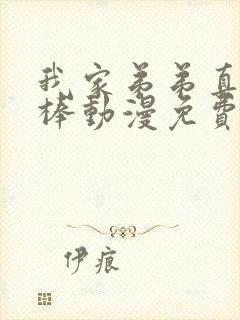 我家弟弟真
棒動漫免費
伊痕